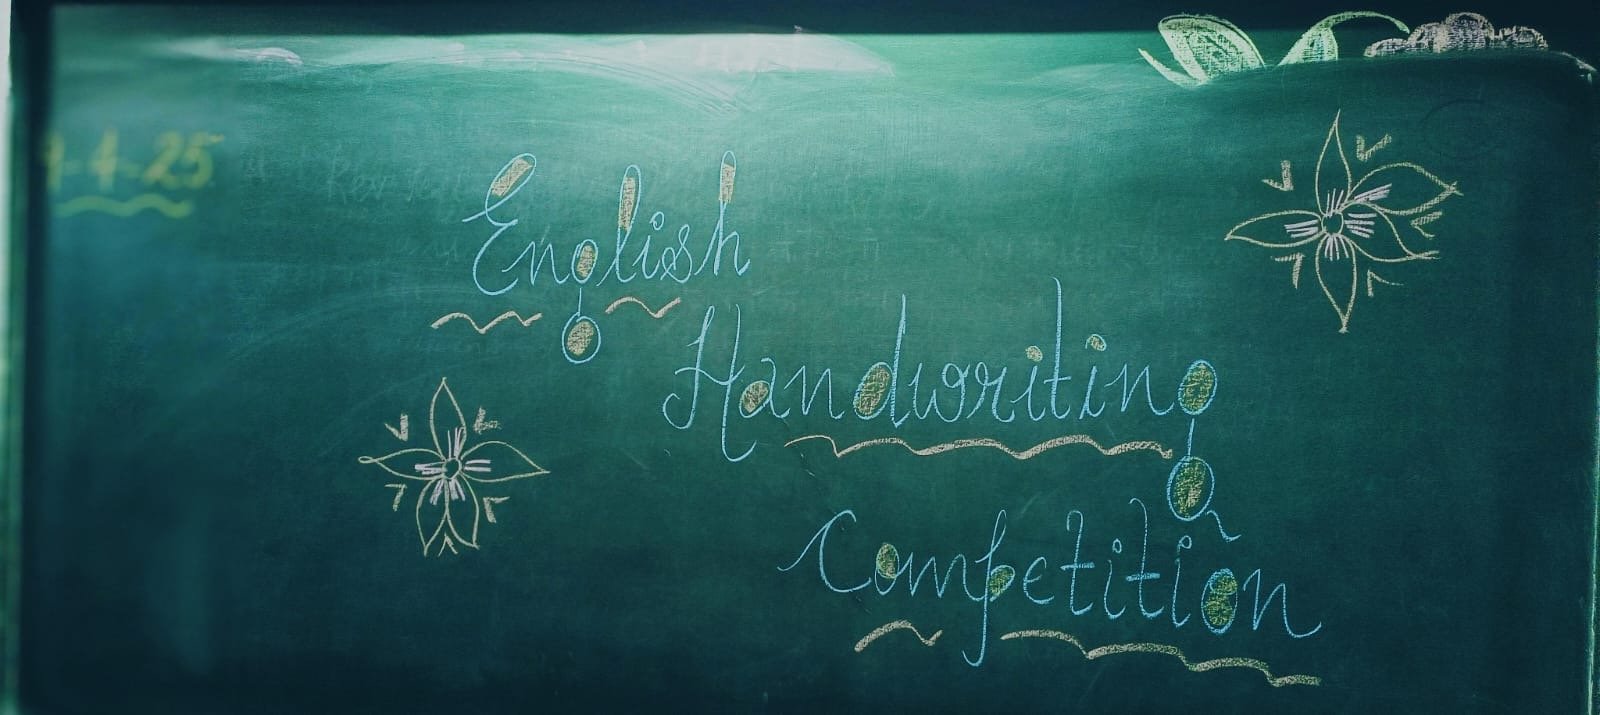 4-4-25
English
Handwriting
Competition